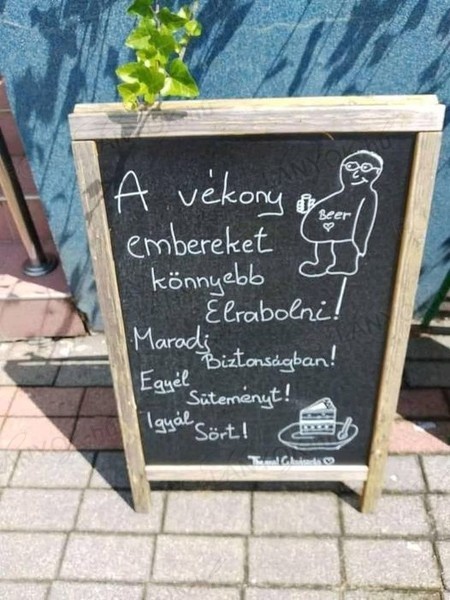 A vékony
Beer
embereket
könnyebb
Elrabolni!
Maradj
Biztonságban!
Egyél
Süteményt!
Igyál
Sört!